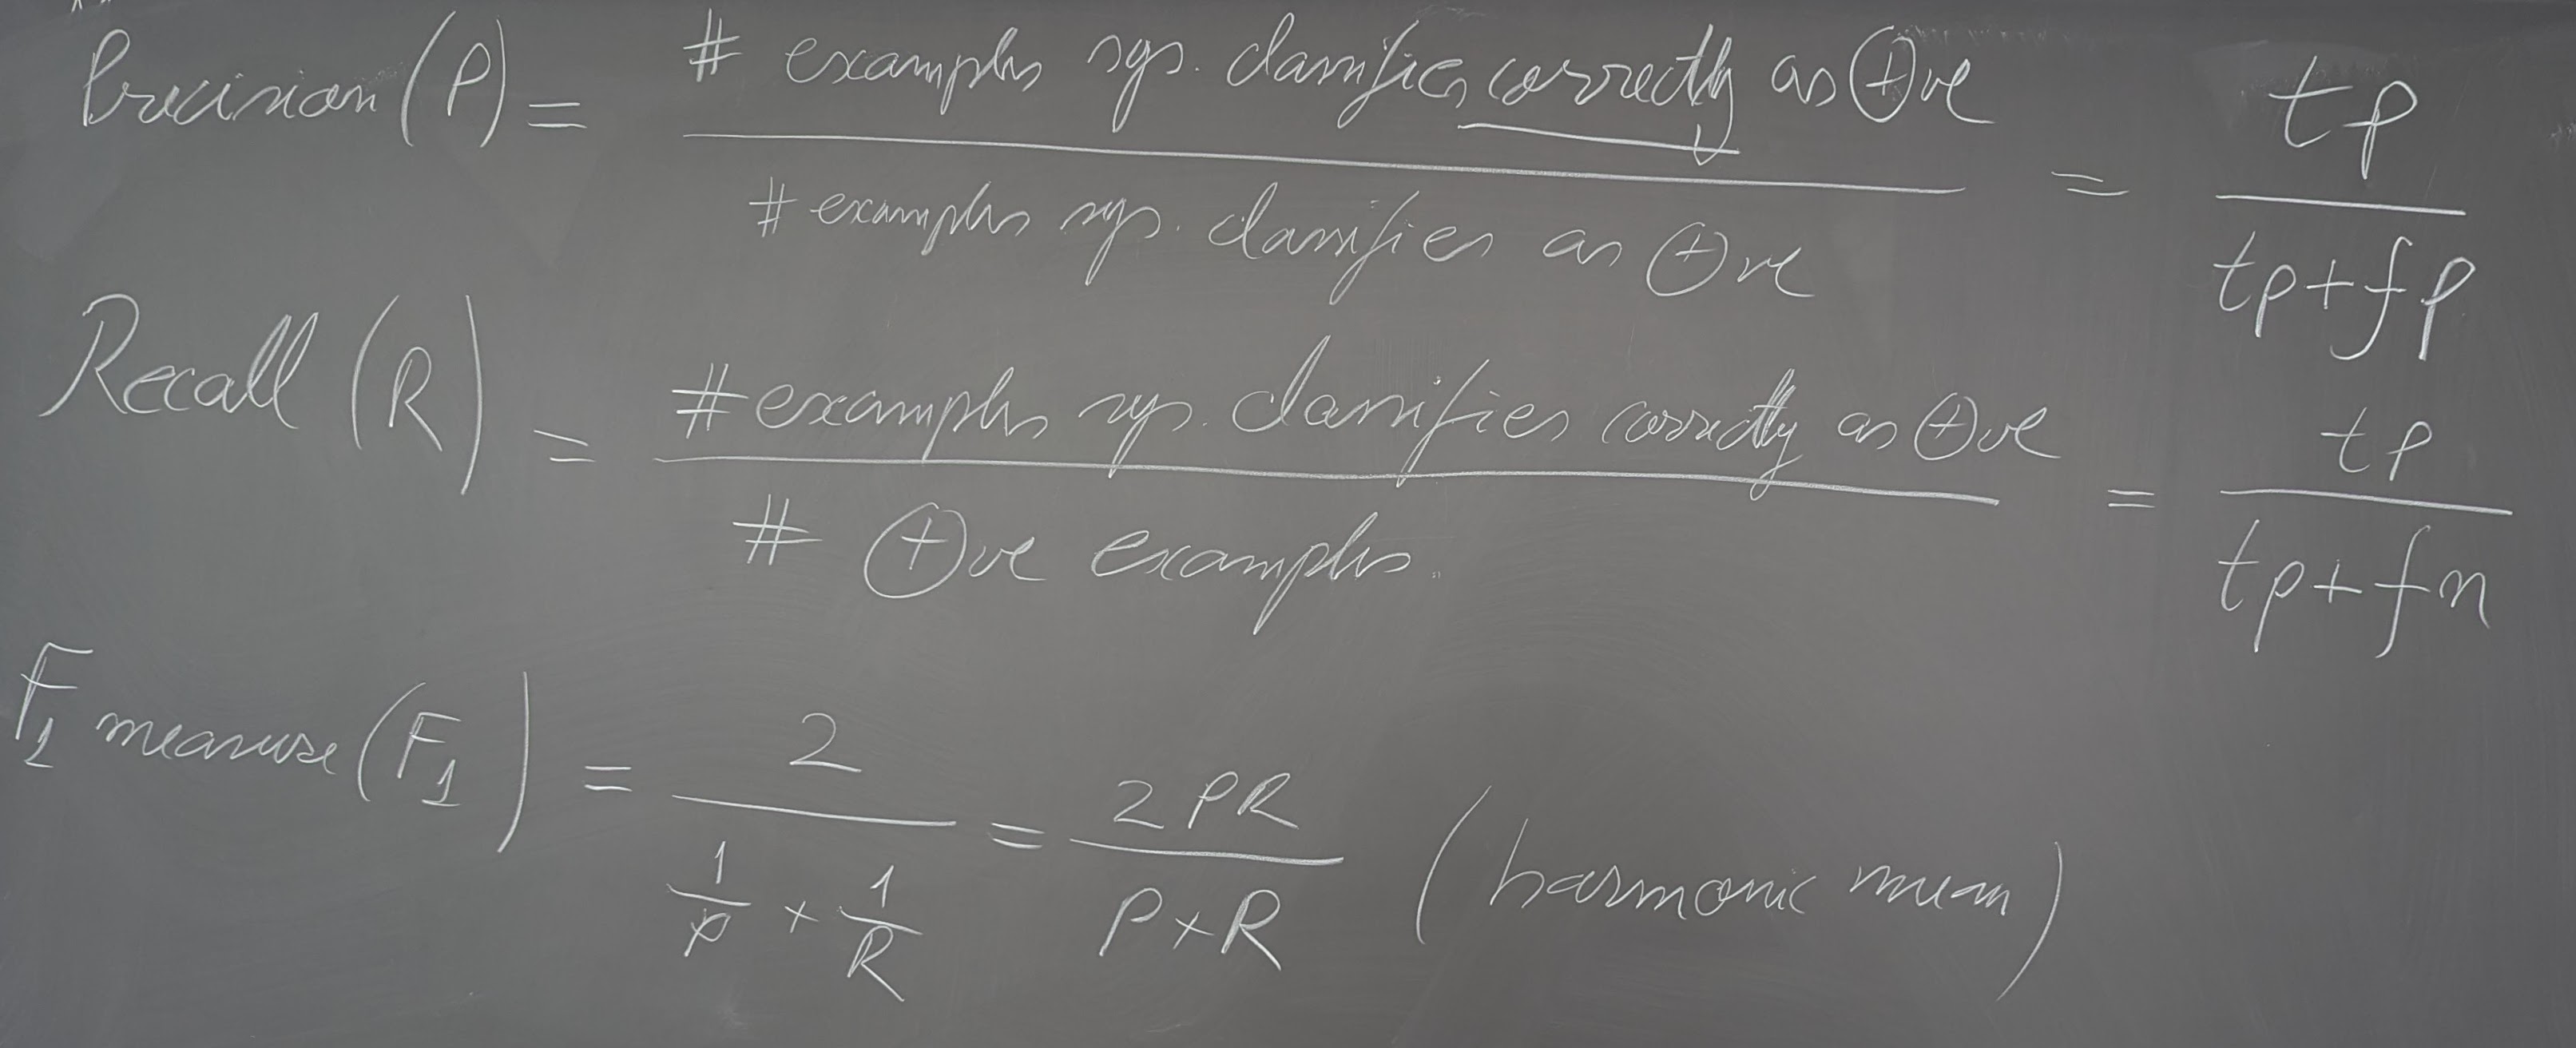 Precision (P) = # examples sys. classifies correctly as ⊕ve / # examples sys. classifies as ⊕ve = tp / tp+fp
Recall (R) = # examples sys. classifies correctly as ⊕ve / # ⊕ve examples. = tp / tp+fn
F₁ measure (F₁) = 2 / 1/P + 1/R = 2PR / P+R (harmonic mean)